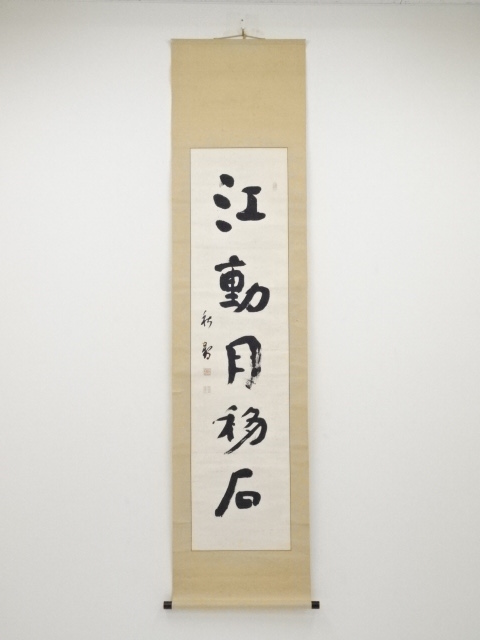 江動月移石